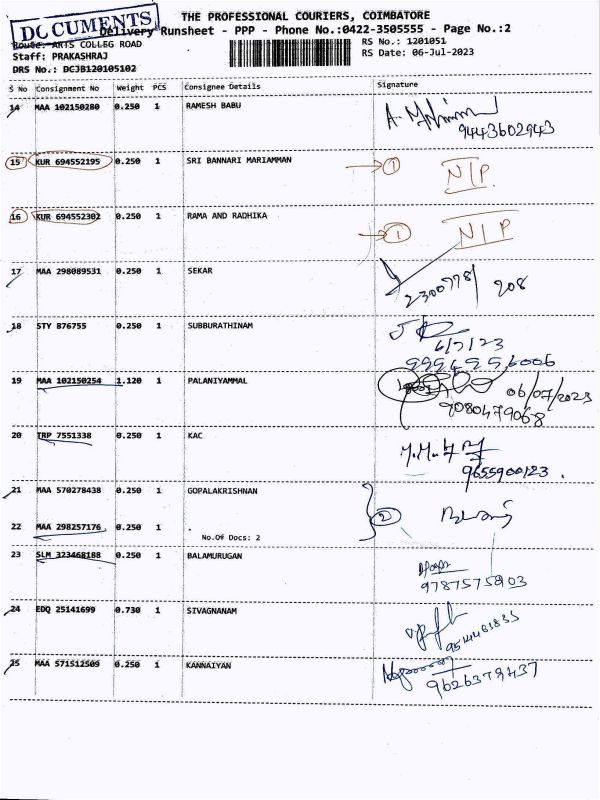 DOCUMENTS
THE PROFESSIONAL COURIERS, COIMBATORE
Delivery Runsheet - PPP - Phone No.:0422-3505555 - Page No.:2
Route: ARTS COLLEG ROAD
RS No.: 1201051
Staff: PRAKASHRAJ
RS Date: 06-Jul-2023
DRS No.: DCJB120105102
S No Consignment No Weight PCS Consignee Details Signature
14 MAA 102150280 0.250 1 RAMESH BABU
9443602943
15 KUR 694552195 0.250 1 SRI BANNARI MARIAMMAN 1 N/P
16 KUR 694552302 0.250 1 RAMA AND RADHIKA 1 N/P
17 MAA 298089531 0.250 1 SEKAR
2300778/ 208
18 STY 876755 0.250 1 SUBBURATHINAM
6/7/23
19 MAA 102150254 1.120 1 PALANIYAMMAL
06/07/2023
9080479068
20 TRP 7551338 0.250 1 KAC
9655900123.
21 MAA 570278438 0.250 1 GOPALAKRISHNAN
2
22 MAA 298257176 0.250 1 .
No.Of Docs: 2
23 SLM 323468188 0.250 1 BALAMURUGAN
9787575803
24 EDQ 25141699 0.730 1 SIVAGNANAM
25 MAA 571512509 0.250 1 KANNAIYAN
9626379437